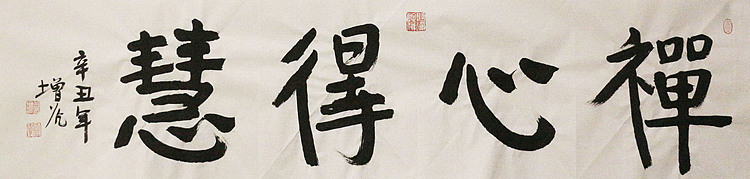 禪心得慧
辛丑年
增光